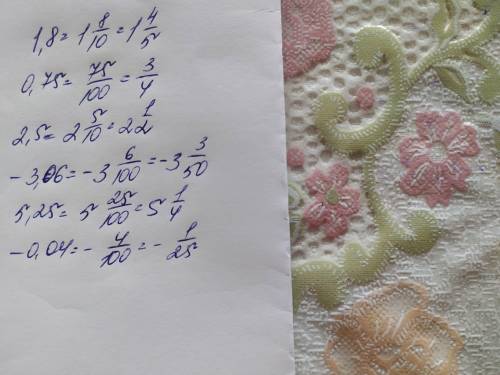 1,8 = 1 8/10 = 1 4/5
0,75 = 75/100 = 3/4
2,5 = 2 5/10 = 2 1/2
-3,06 = -3 6/100 = -3 3/50
5,25 = 5 25/100 = 5 1/4
-0,04 = - 4/100 = - 1/25